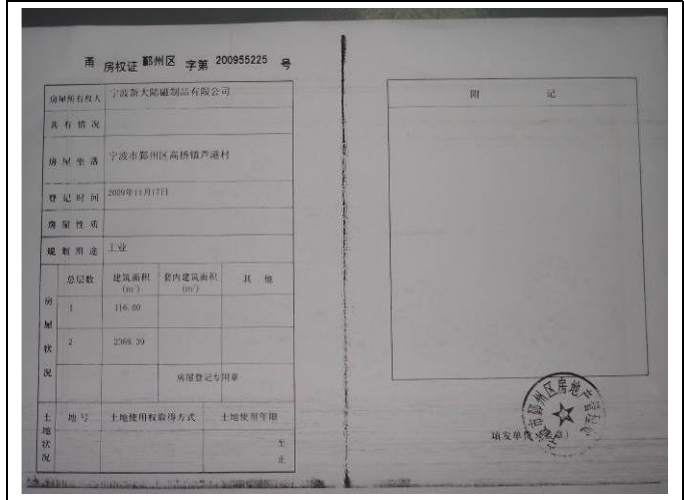 甬 房权证 鄞州区 字第 200955225 号
房屋所有权人 宁波新大陆磁制品有限公司
共有情况
房屋坐落 宁波市鄞州区高桥镇芦港村
登记时间 2009年11月17日
房屋性质
规划用途 工业
房屋状况
总层数 建筑面积(m²) 套内建筑面积(m²) 其他
1 116.80
2 2369.39
房屋登记专用章
土地状况
地号 土地使用权取得方式 土地使用年限
至
止
附 记
市鄞州区房地产管理
填发单位(盖章)